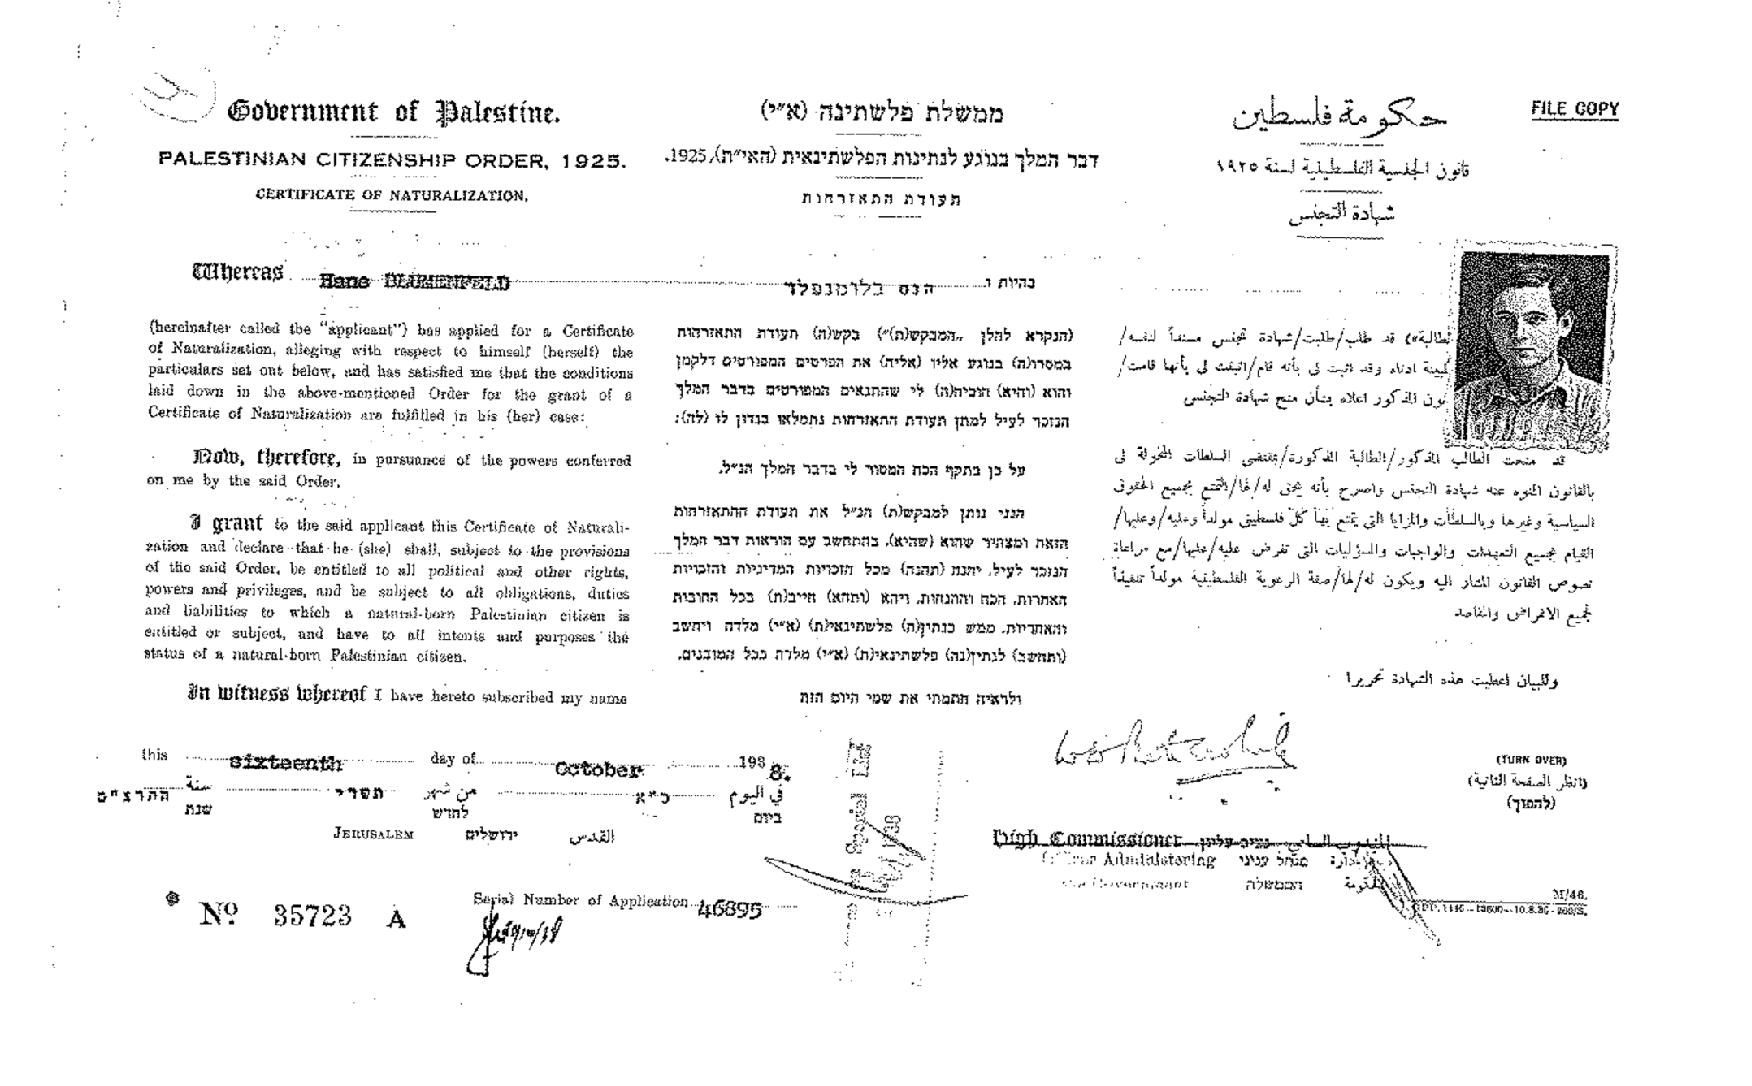 Government of Palestine.
PALESTINIAN CITIZENSHIP ORDER, 1925.
CERTIFICATE OF NATURALIZATION.
ממשלת פלשתינה (א״י)
דבר המלך בנוגע לנתינות הפלשתינאית (הא״י), 1925.
תעודת התאזרחות
حكومة فلسطين
قانون الجنسية الفلسطينية لسنة ١٩٢٥
شهادة التجنس
FILE COPY
Whereas Hans BLUMENFELD
(hereinafter called the "applicant") has applied for a Certificate
of Naturalization, alleging with respect to himself (herself) the
particulars set out below, and has satisfied me that the conditions
laid down in the above-mentioned Order for the grant of a
Certificate of Naturalization are fulfilled in his (her) case:
Now, therefore, in pursuance of the powers conferred
on me by the said Order,
I grant to the said applicant this Certificate of Naturali-
zation and declare that he (she) shall, subject to the provisions
of the said Order, be entitled to all political and other rights,
powers and privileges, and be subject to all obligations, duties
and liabilities to which a natural-born Palestinian citizen is
entitled or subject, and have to all intents and purposes the
status of a natural-born Palestinian citizen.
In witness whereof I have hereto subscribed my name
היות ו הנס בלומנפלד
(הנקרא להלן „המבקש(ת)״) בקש(ה) תעודת התאזרחות
במסרו(ה) בנוגע אליו (אליה) את הפרטים המפורטים דלקמן
והוא (והיא) הוכיח(ה) לי שהתנאים המפורטים בדבר המלך
הנזכר לעיל למתן תעודת התאזרחות נתמלאו בנדון לו (לה):
על כן בתקף הכח המסור לי בדבר המלך הנ״ל,
הנני נותן למבקש(ת) הנ״ל את תעודת ההתאזרחות
הזאת ומצהיר שהוא (שהיא), בהתחשב עם הוראות דבר המלך
הנזכר לעיל, יהנה (תהנה) מכל הזכויות המדיניות והזכויות
האחרות, הכח וההנחות, ויהא (ותהא) חייב(ת) בכל החובות
והאחריות, ממש כנתין(ה) פלשתינאי(ת) (א״י) מלדה ויחשב
(ותחשב) לנתין(נה) פלשתינאי(ת) (א״י) מלדת בכל המובנים.
ולראיה חתמתי את שמי היום הזה
الطالبة») قد طلب/طلبت/شهادة تجنس مسنداً لنفسه/
المبينة ادناه وقد اثبت لي بأنه قام/اثبتت لي بأنها قامت/
القانون المذكور اعلاه بشأن منح شهادة التجنس
قد منحت الطالب المذكور/الطالبة المذكورة/بمقتضى السلطات المخولة لي
بالقانون المنوه عنه شهادة التجنس واصرح بأنه يحق له/لها/التمتع بجميع الحقوق
السياسية وغيرها وبالسلطات والمزايا التي يتمتع بها كل فلسطيني مولداً وعليه/وعليها/
القيام بجميع التعهدات والواجبات والمسؤليات التي تفرض عليه/عليها/مع مراعاة
نصوص القانون المشار اليه ويكون له/لها/صفة الرعوية الفلسطينية مولداً تنفيذاً
لجميع الاغراض والمقاصد
وللبيان اعطيت هذه الشهادة تحريرا
this sixteenth day of October 1938.
سنة من شهر في اليوم
התרצ"ט שנת תשרי לחדש כ"א ביום
JERUSALEM ירושלים القدس
(TURN OVER)
(انظر الصفحة الثانية)
(להפוך)
High Commissioner נציב עליון المندوب السامي
Officer Administering מנהל עניני
the Government הממשלה
Special List
Nº 35723 A
Serial Number of Application 46895
M/46.